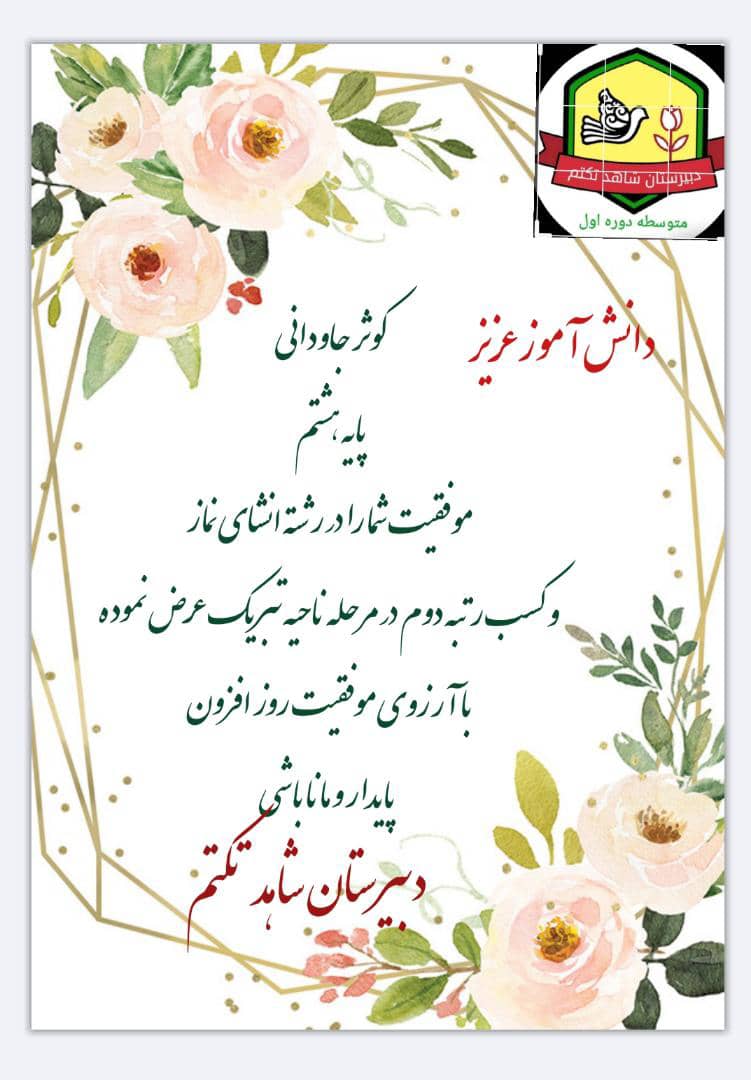 دبیرستان شاهد تکتم
متوسطه دوره اول
دانش آموز عزیز کوثر جاودانی
پایه هشتم
موفقیت شما را در رشته انشای نماز
و کسب رتبه دوم در مرحله ناحیه تبریک عرض نموده
با آرزوی موفقیت روز افزون
پایدار و مانا باشی
دبیرستان شاهد تکتم